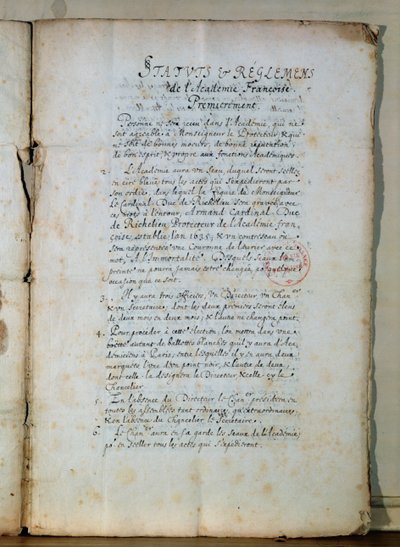 STATVTS & RÉGLEMENS
de l'Académie Françoise.
Premierement.
Personne ne sera receu dans l'Académie, qui ne
soit agreable à Monseigneur le Protecteur & qui
ne soit de bonnes moeurs, de bonne réputation,
de bon esprit, & propre aux fonctions Académiques.
2. L'Academie aura vn Seau, duquel seront sellez
en cire bleue, tous les actes qui s'expedieront par
son ordre, dans lequel la figure de Monseigneur
le Cardinal Duc de Richelieu sera gravée avec
ces mots à l'entour, Armand Cardinal Duc
de Richelieu Protecteur de l'Academie fran-
çoise, establie l'an 1635, & vn contreseau où
sera representée vne Couronne de laurier avec ce
mot, A l'Immortalité. Desquels Seaux l'em-
preinte ne pourra jamais estre changée, po.r quelque
occasion que ce soit.
3. Il y aura trois officiers, vn Directeur, vn Chan.er
& vn Secretaire, dont les deux premiers seront éleus
de deux mois en deux mois, & l'autre ne changera point.
4. Pour proceder à cette élection, l'on mettra dans vne
boëtte autant de ballottes blanches qu'il y aura d'Aca-
démiciens à Paris, entre lesquelles il y en aura deux
marquées l'vne d'vn point noir, & l'autre de deux,
dont celle-là désignera le Directeur, & celle-cy le
Chancelier.
5. En l'absence du Directeur le Chan.er presidera en
toutes les assemblées tant ordinaires, qu'extraordinaires,
& en l'absence du Chancelier le Secretaire.
6. Le Chan.er aura en sa garde les Seaux de l'Académie,
po.r en sceller tous les actes qui s'expedieront.